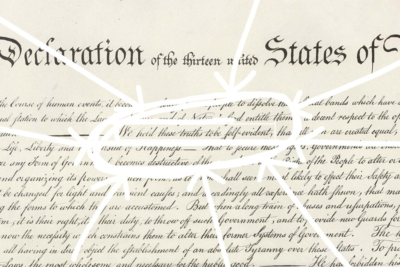 Declaration of the thirteen united States of
the Course of human events, it becomes people to dissolve the bands which have
station to which the Laws of Nature's God entitle them, a decent respect to the
We hold these truths to be self-evident, that all men are created equal,
Life, Liberty and the pursuit of Happiness — That to secure these rights, Governments are
any Form of Government becomes destructive of the Right of the People to alter or
and organizing its powers in such form, as to shall seem most likely to effect their Safety
be changed for light and transient causes; and accordingly all experience hath shewn, that
the forms to which they are accustomed. But when a long train of abuses and usurpations,
it is their right, it is their duty, to throw off such Government, and to provide new Guards for
now the necessity which constrains them to alter their former Systems of Government.
all having in direct object the establishment of an absolute Tyranny over these States. To
the most wholesome and necessary for the public good. He has forbidden his